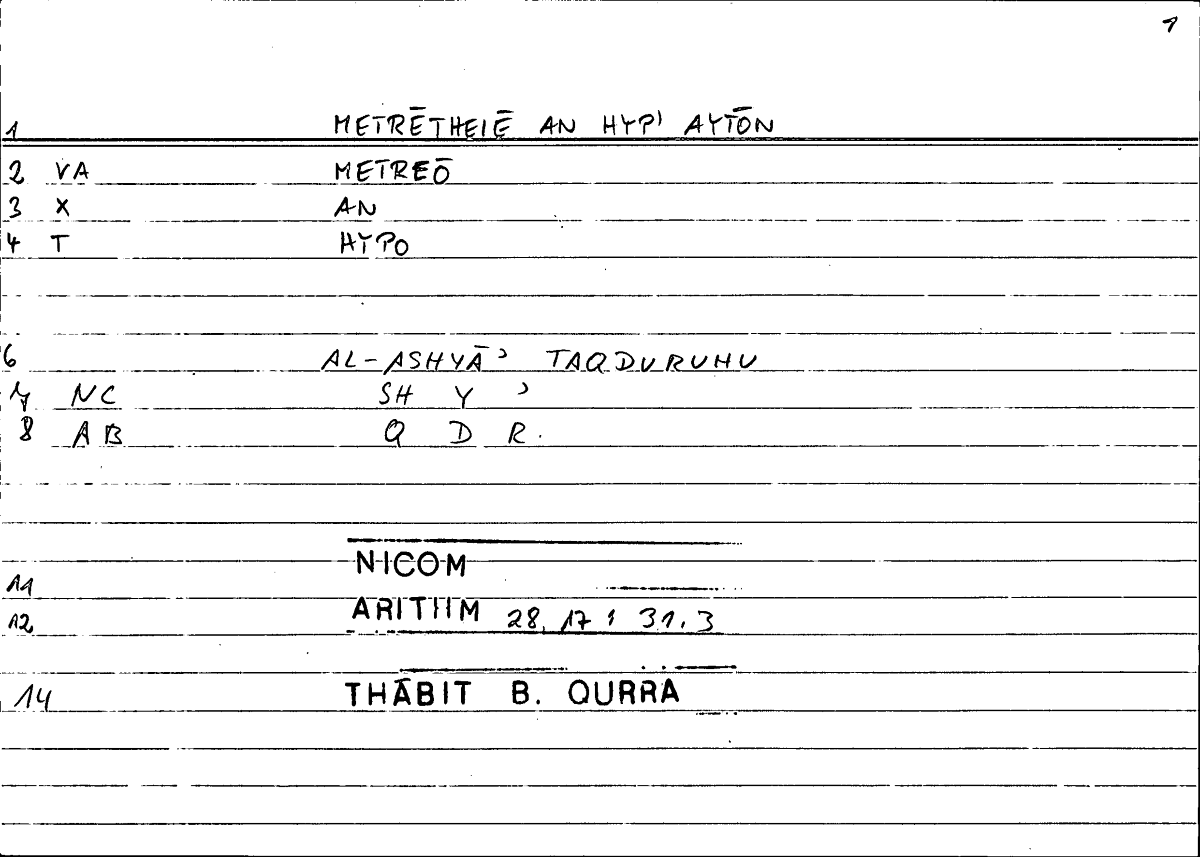 1
1 METRĒTHEIĒ AN HYP' AYTŌN
2 VA METREŌ
3 X AN
4 T HYPO
6 AL-ASHYĀʾ TAQDURUHU
7 NC SH Y ʾ
8 AB Q D R.
11 NICOM
12 ARITHM 28, 17 ; 31.3
14 THĀBIT B. QURRA